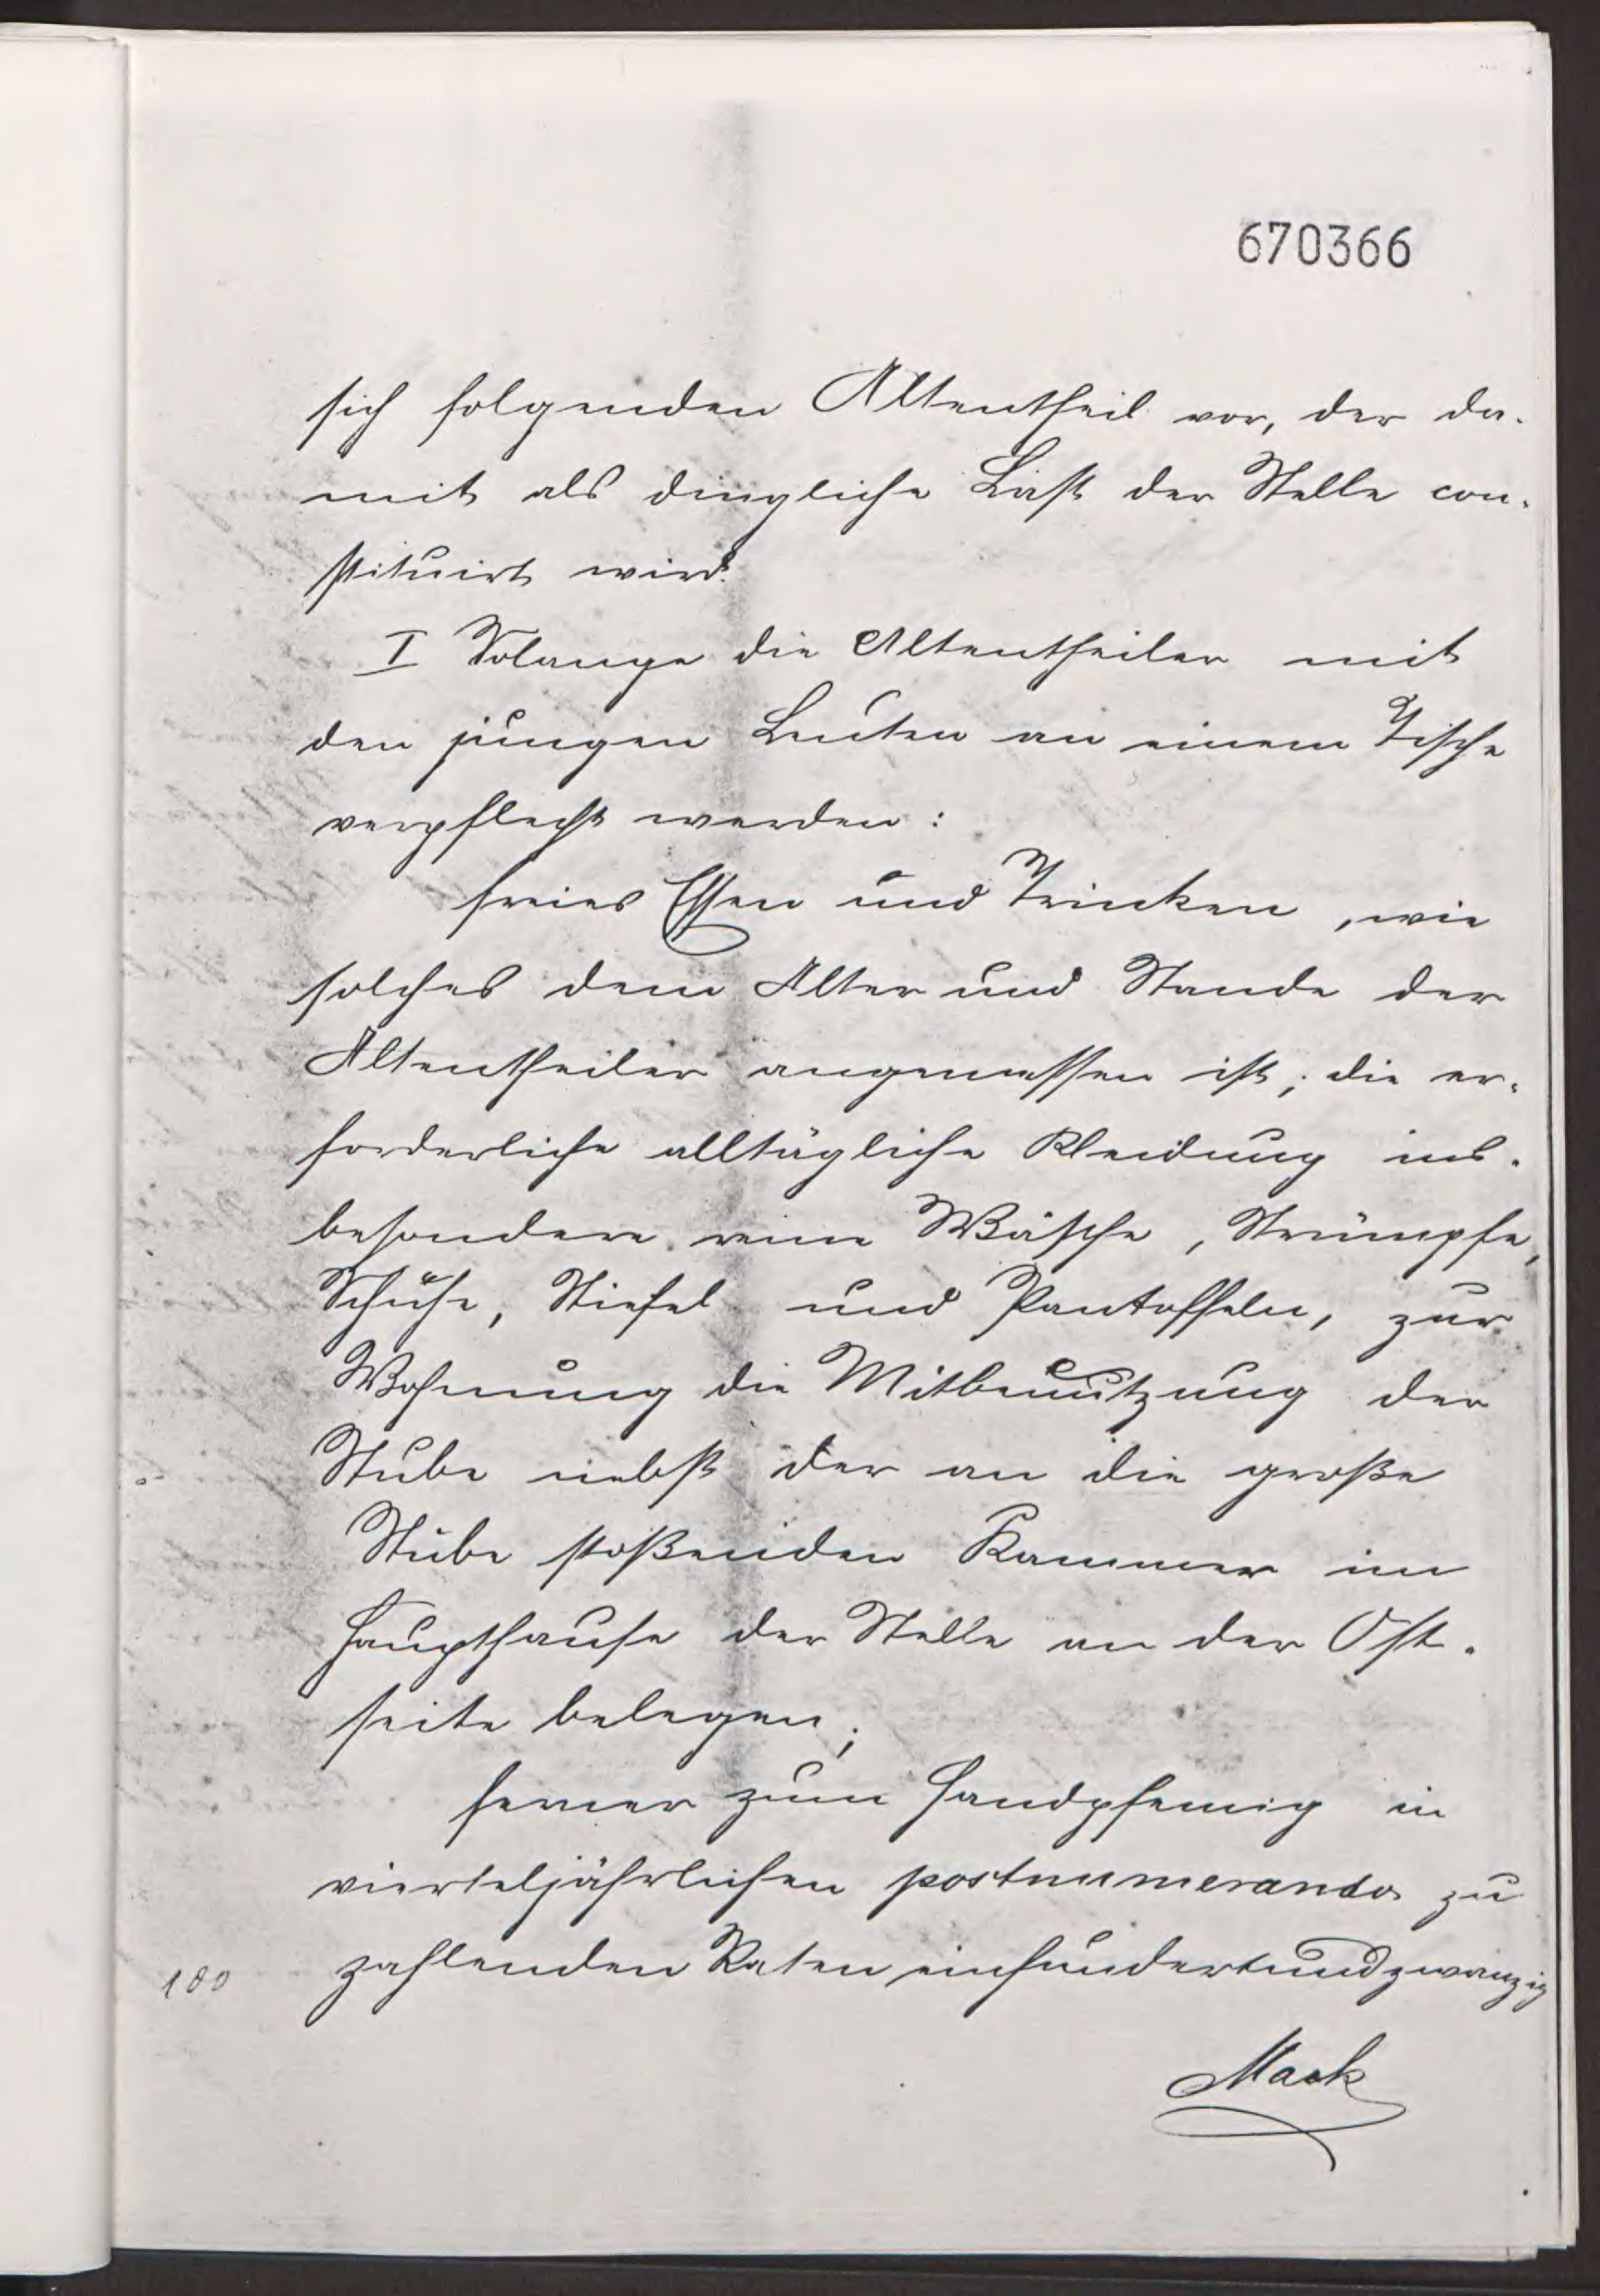 670366
sich folgenden Altentheil vor, der da-
mit als dingliche Last der Stelle con-
stituirt wird.
I Solange die Altentheiler mit
den jungen Leuten an einem Tische
verpflegt werden:
freies Essen und Trinken, wie
solches dem Alter und Stande der
Altentheiler angemessen ist; die er-
forderliche alltägliche Kleidung ins-
besondere reine Wäsche, Strümpfe,
Schuhe, Stiefel und Pantoffeln, zur
Wohnung die Mitbenutzung der
Stube nebst der an die große
Stube stoßenden Kammer im
Haupthause der Stelle an der Ost-
seite belegen;
ferner zum Handpfennig in
vierteljährlichen postnumerando zu
zahlenden Raten einhundertundzwanzig
180
Mack